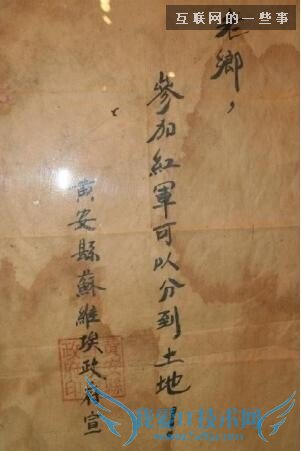 互联网的一些事
老鄉，
參加紅軍可以分到土地！
黄安縣蘇維埃政府宣